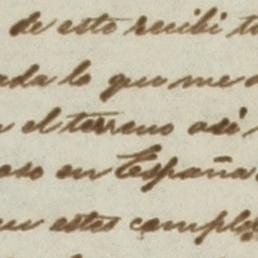 de esto recibi t
ada lo que me
el terreno asi
oso en España
estos complo